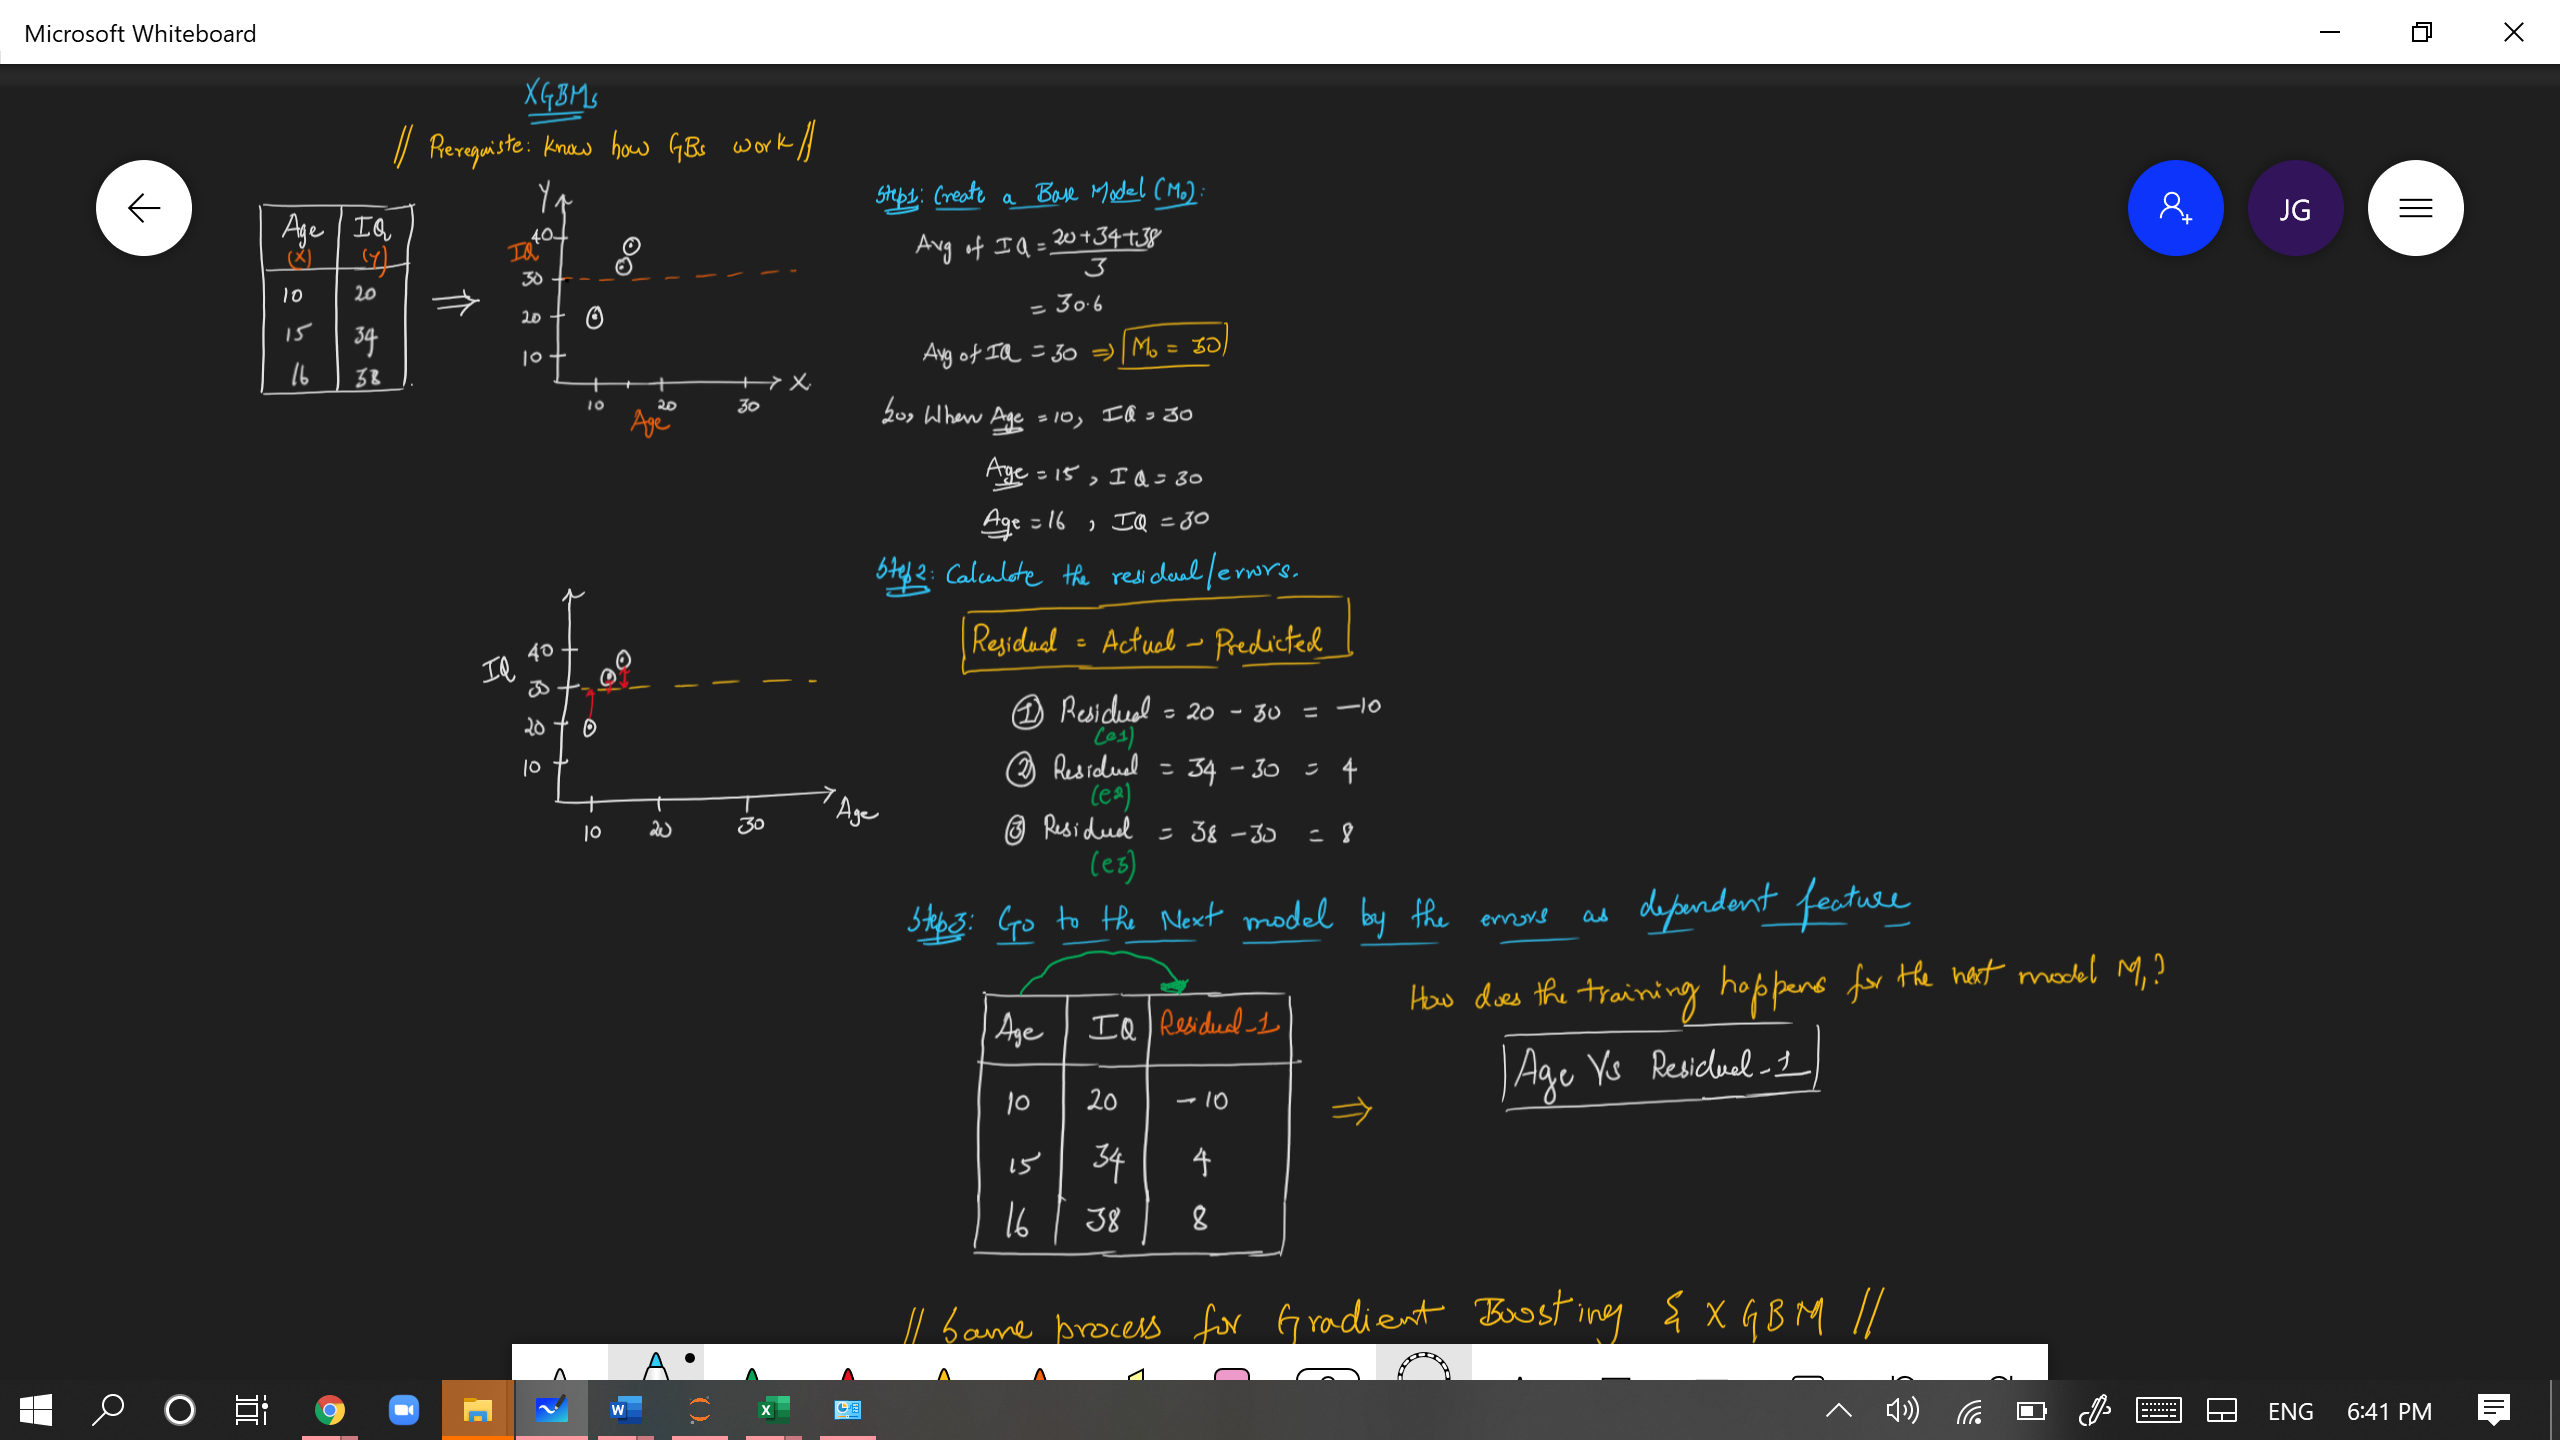 Microsoft Whiteboard
XGBMs
// Prerequiste: Know how GBs work //
Age IQ
(X) (Y)
10 20
15 34
16 38
⇒
Y
IQ
40
30
20
10
10 20 30
X
Age
Step1: Create a Base Model (M₀):
Avg of IQ = 20+34+38
3
= 30.6
Avg of IQ = 30 ⇒ M₀ = 30
So, When Age = 10, IQ = 30
Age = 15, IQ = 30
Age = 16, IQ = 30
JG
IQ
40
30
20
10
10 20 30
Age
Step2: Calculate the residual/errors.
Residual = Actual - Predicted
① Residual = 20 - 30 = -10
(e1)
② Residual = 34 - 30 = 4
(e2)
③ Residual = 38 - 30 = 8
(e3)
Step3: Go to the Next model by the errors as dependent feature
Age IQ Residual-1
10 20 -10
15 34 4
16 38 8
⇒
How does the training happens for the next model M₁?
Age Vs Residual-1
// Same process for Gradient Boosting & XGBM //
ENG 6:41 PM